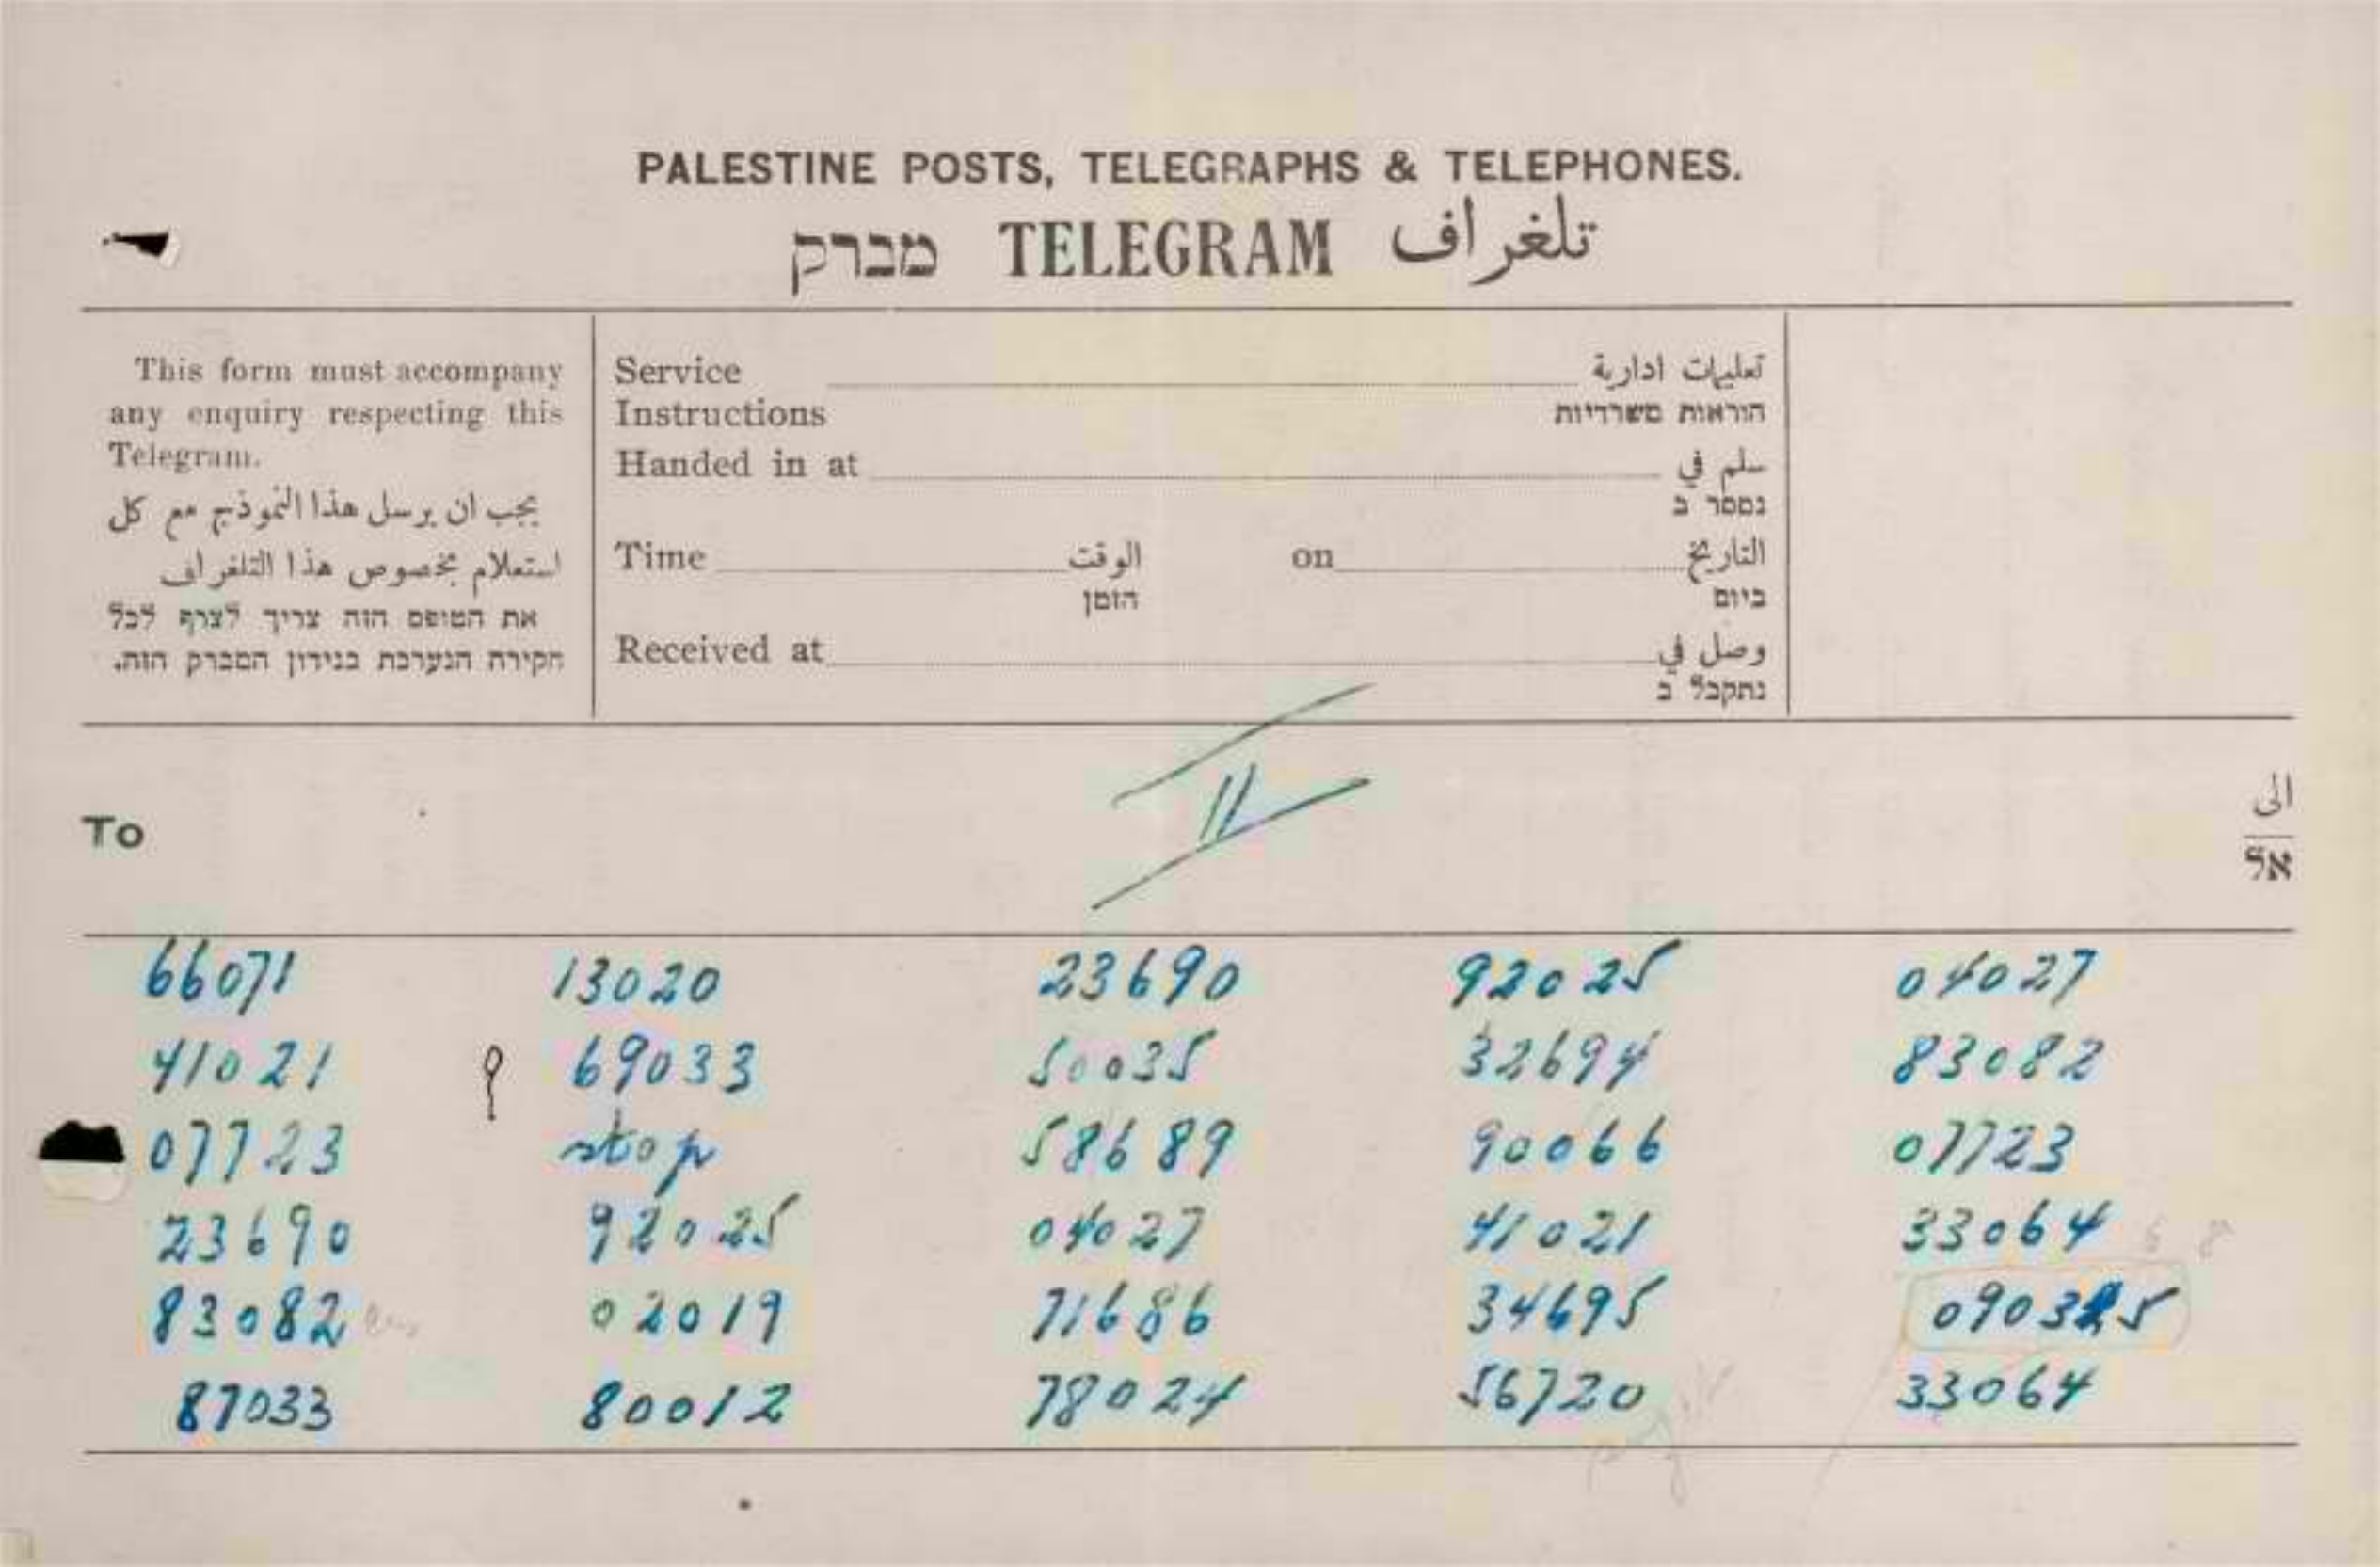 PALESTINE POSTS, TELEGRAPHS & TELEPHONES.
מברק TELEGRAM تلغراف
This form must accompany
any enquiry respecting this
Telegram.
يجب ان يرسل هذا النموذج مع كل
استعلام بخصوص هذا التلغراف
את הטופס הזה צריך לצרף לכל
חקירה הנערכת בנידון המברק הזה.
Service تعليمات ادارية
Instructions הוראות משרדיות
Handed in at سلم في
נמסר ב
Time الوقت on التاريخ
הזמן ביום
Received at وصل في
נתקבל ב
11
To الى
אל
66071 13020 23690 92025 04027
41021 69033 50035 32694 83082
07723 stop 58689 90066 07723
23690 92025 04027 41021 33064
83082 02019 71686 34695
87033 80012 78024 56720 33064